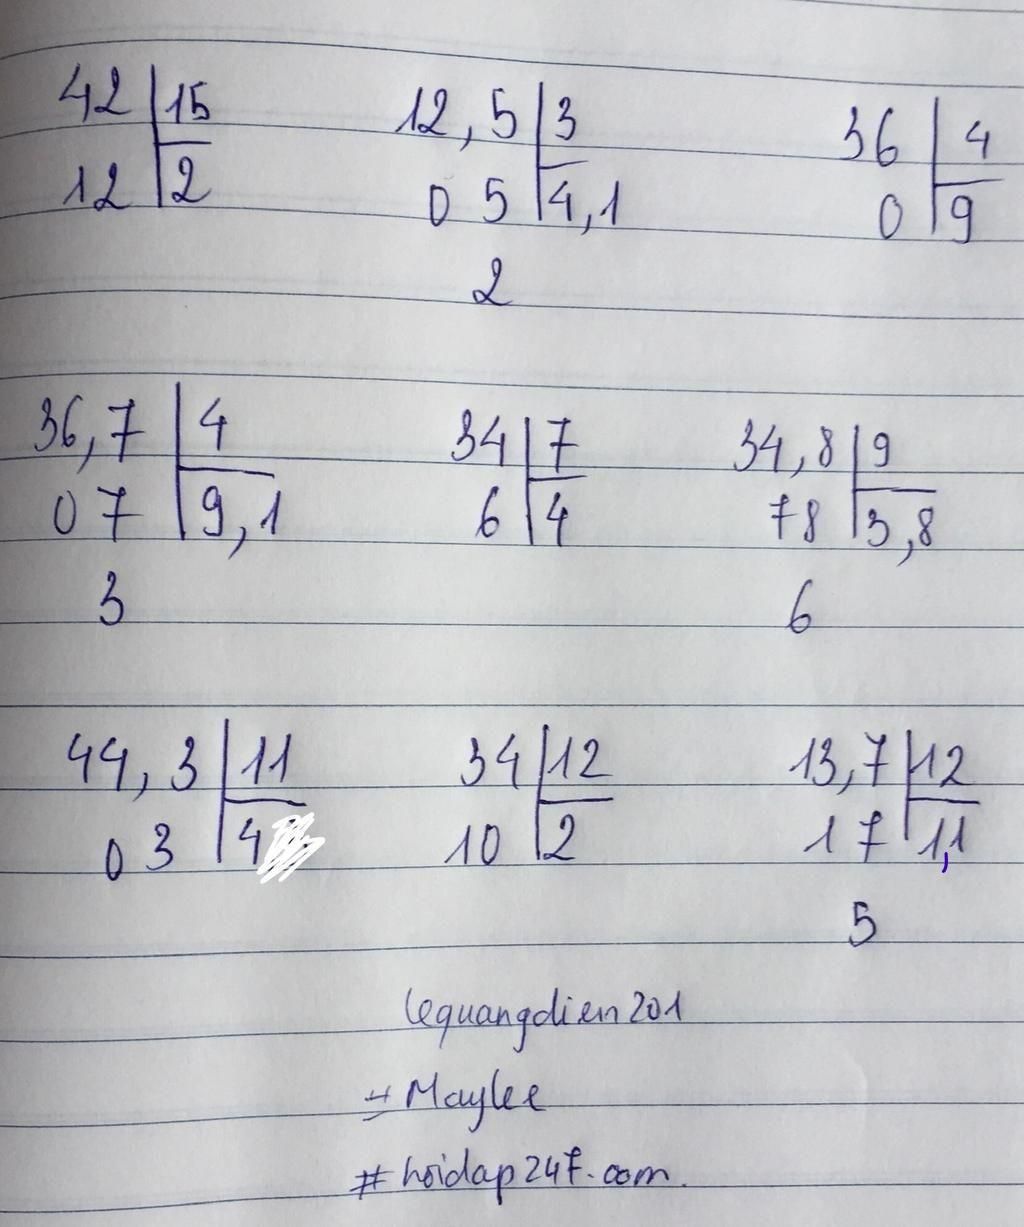 42 15 12,5 3 36 4
12 2 0 5 4,1 0 9
2
36,7 4 34 7 34,8 9
0 7 9,1 6 4 78 3,8
3 6
44,3 11 34 12 13,7 12
0 3 4 10 2 1 7 1,1
5
lequangdien201
# Maylee
# hoidap247.com.